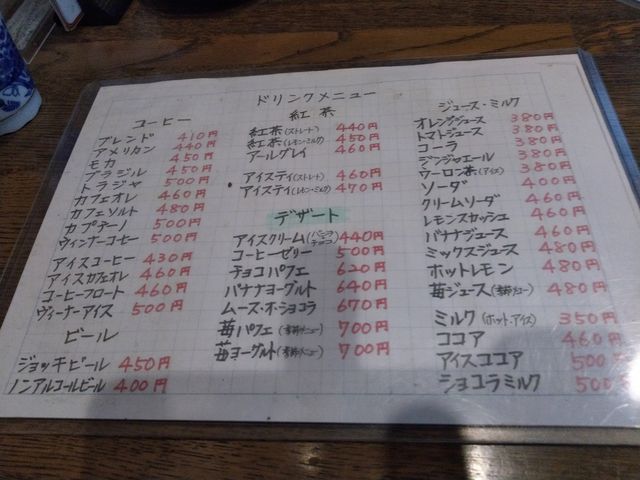 ドリンクメニュー
コーヒー
ブレンド 410円
アメリカン 440円
モカ 450円
ブラジル 450円
トラジャ 500円
カフェオレ 460円
カフェソルト 480円
カプチーノ 500円
ウィンナーコーヒー 500円
アイスコーヒー 430円
アイスカフェオレ 460円
コーヒーフロート 460円
ヴィーナーアイス 500円
ビール
ジョッキビール 450円
ノンアルコールビール 400円
紅茶
紅茶(ストレート) 440円
紅茶(レモン・ミルク) 450円
アールグレイ 460円
アイスティ(ストレート) 460円
アイスティ(レモン・ミルク) 470円
デザート
アイスクリーム(バニラ チョコ) 440円
コーヒーゼリー 500円
チョコパフェ 620円
バナナヨーグルト 640円
ムース・オ・ショコラ 670円
苺パフェ(季節メニュー) 700円
苺ヨーグルト(季節メニュー) 700円
ジュース・ミルク
オレンジジュース 380円
トマトジュース 380円
コーラ 380円
ジンジャエール 380円
ウーロン茶(アイス) 380円
ソーダ 400円
クリームソーダ 460円
レモンスカッシュ 460円
バナナジュース 460円
ミックスジュース 480円
ホットレモン 480円
苺ジュース(季節メニュー) 480円
ミルク(ホット・アイス) 350円
ココア 460円
アイスココア 500円
ショコラミルク 500円